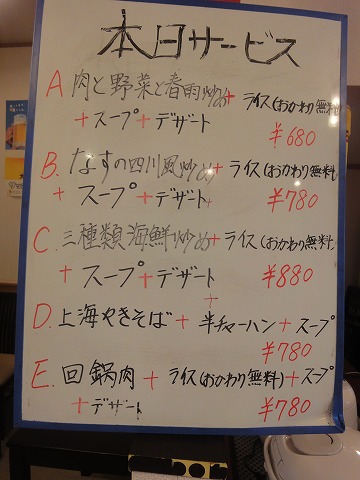 本日サービス
A 肉と野菜と春雨炒め+ライス(おかわり無料)
+スープ+デザート
¥680
B. なすの四川風炒め+ライス(おかわり無料)
+スープ+デザート
¥780
C. 三種類海鮮炒め+ライス(おかわり無料)
+スープ+デザート
¥880
D. 上海やきそば+半チャーハン+スープ
¥780
E. 回鍋肉+ライス(おかわり無料)+スープ
+デザート
¥780